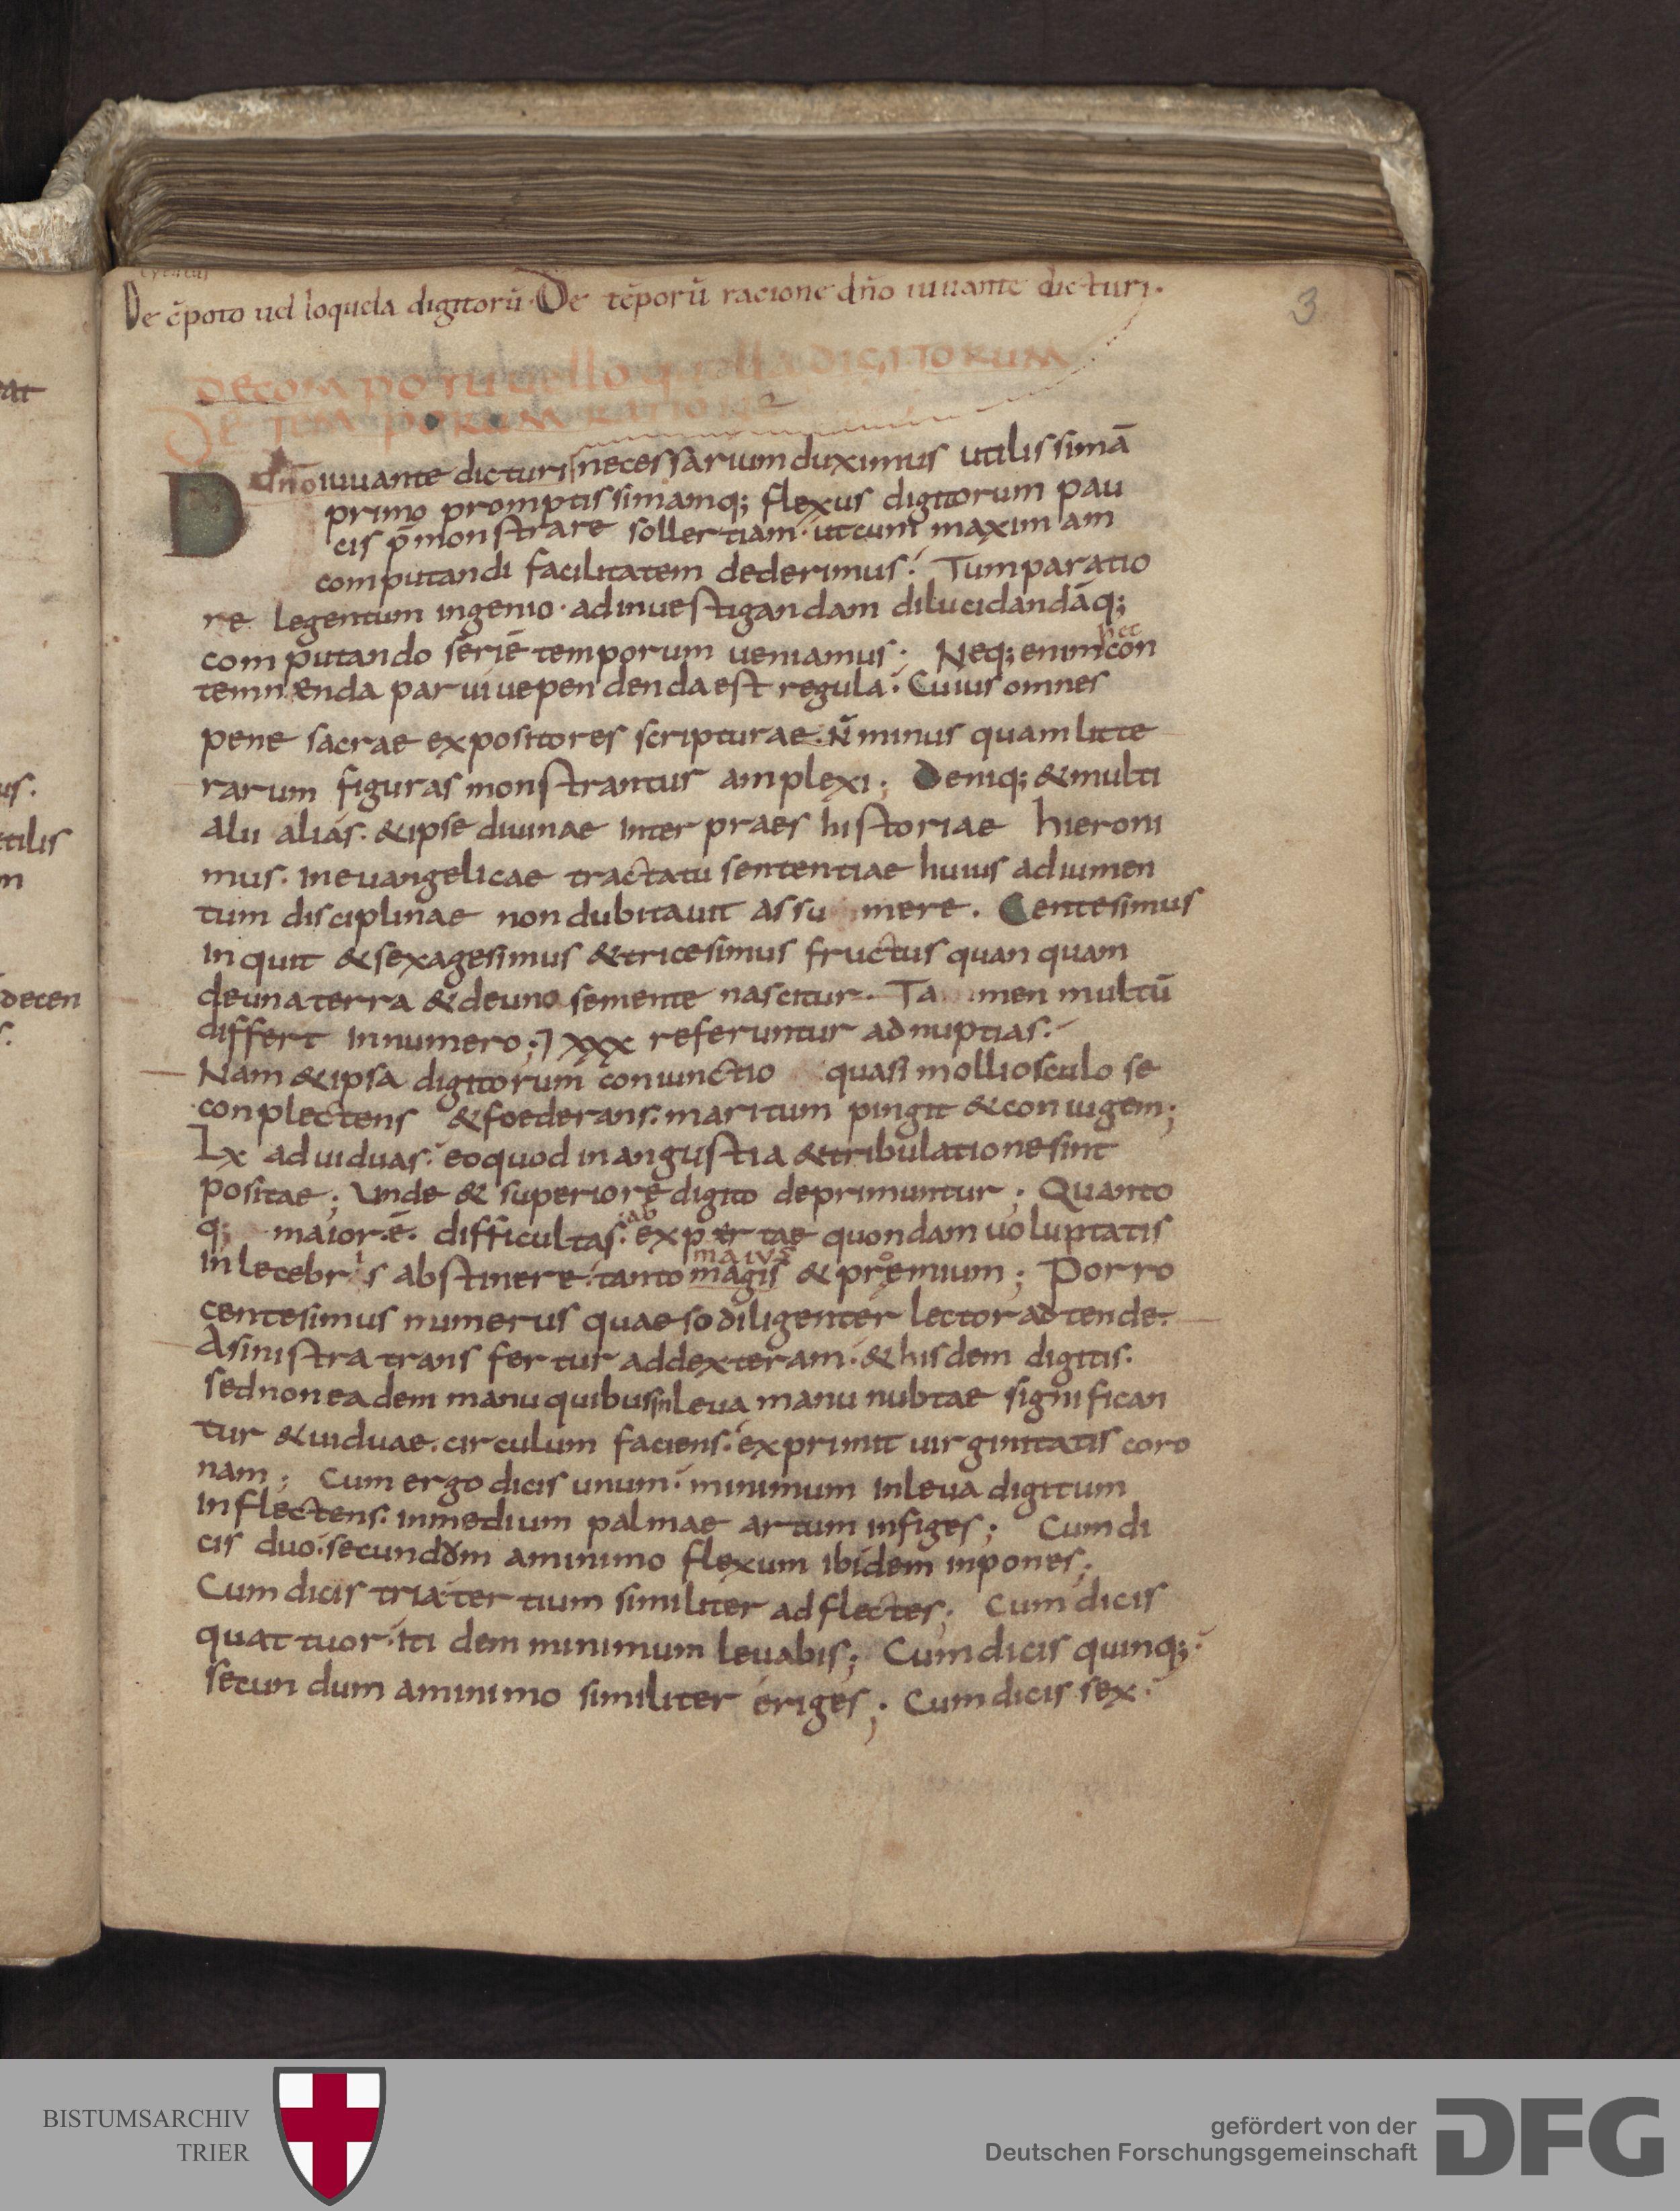 De c̄poto uel loquela digitorū. De tēporū racione dño iuuante dicturi.
3
DE COMPOTU VEL LOQUELLA DIGITORUM
DE TEMPORUM RATIONE
D dño iuuante dicturi necessarium duximus utilissimā
primo promptissimamq; flexus digitorum pau
cis p̄monstrare sollertiam. ut cum maximam
computandi facilitatem dederimus. Tum paratio
re legentum ingenio. ad inuestigandam dilucidandāq;
computando seriē temporum ueniamus. Neq; enim con
nec
temnænda parui uependenda est regula. Cuius omnes
pene sacrae expositores scripturae. N̄ minus quam litte
rarum figuras monstrantur amplexi; Deniq; & multi
alii alias. & ipse diuinae inter praes historiae hieroni
mus. In euangelicae tractatu sententiae huius adiumen
tum disciplinae non dubitauit assu mere. Centesimus
inquit & sexagesimus & tricesimus fructus quan quam
de una terra & de uno semente nascitur. Ta men multū
differt in numero; ⁊ xxx referuntur ad nuptias.
Nam & ipsa digitorum coniunctio quasi molli osculo se
conplectens & foederans. maritum pingit & coniugem;
Lx ad uiduas. eo quod in angustia & tribulatione sint
positae; Unde & superiore digito deprimuntur; Quanto
q; maior. ē. difficultas. expertae quondam uoluptatis
ab
inlecebris abstinere. tanto magis & prȩmium; Porro
maius
centesimus numerus quaeso diligenter lector adtende.
A sinistra transfertur ad dexteram. & hisdem digitis.
sed non eadem manu quibus in leua manu nubtae significan
tur & uiduae. circulum faciens. exprimit uirginitatis coro
nam; Cum ergo dicis unum. minimum in leua digitum
inflectens. in medium palmae artum infiges; Cum di
cis duo. secundom a minimo flexum ibidem inpones;
Cum dicis tria. tertium similiter adflectes; Cum dicis
quattuor. itidem minimum leuabis; Cum dicis quinq;.
secundum a minimo similiter eriges; Cum dicis sex.
at
us.
tilis
m
decen
s.
BISTUMSARCHIV
TRIER
gefördert von der
Deutschen Forschungsgemeinschaft
DFG